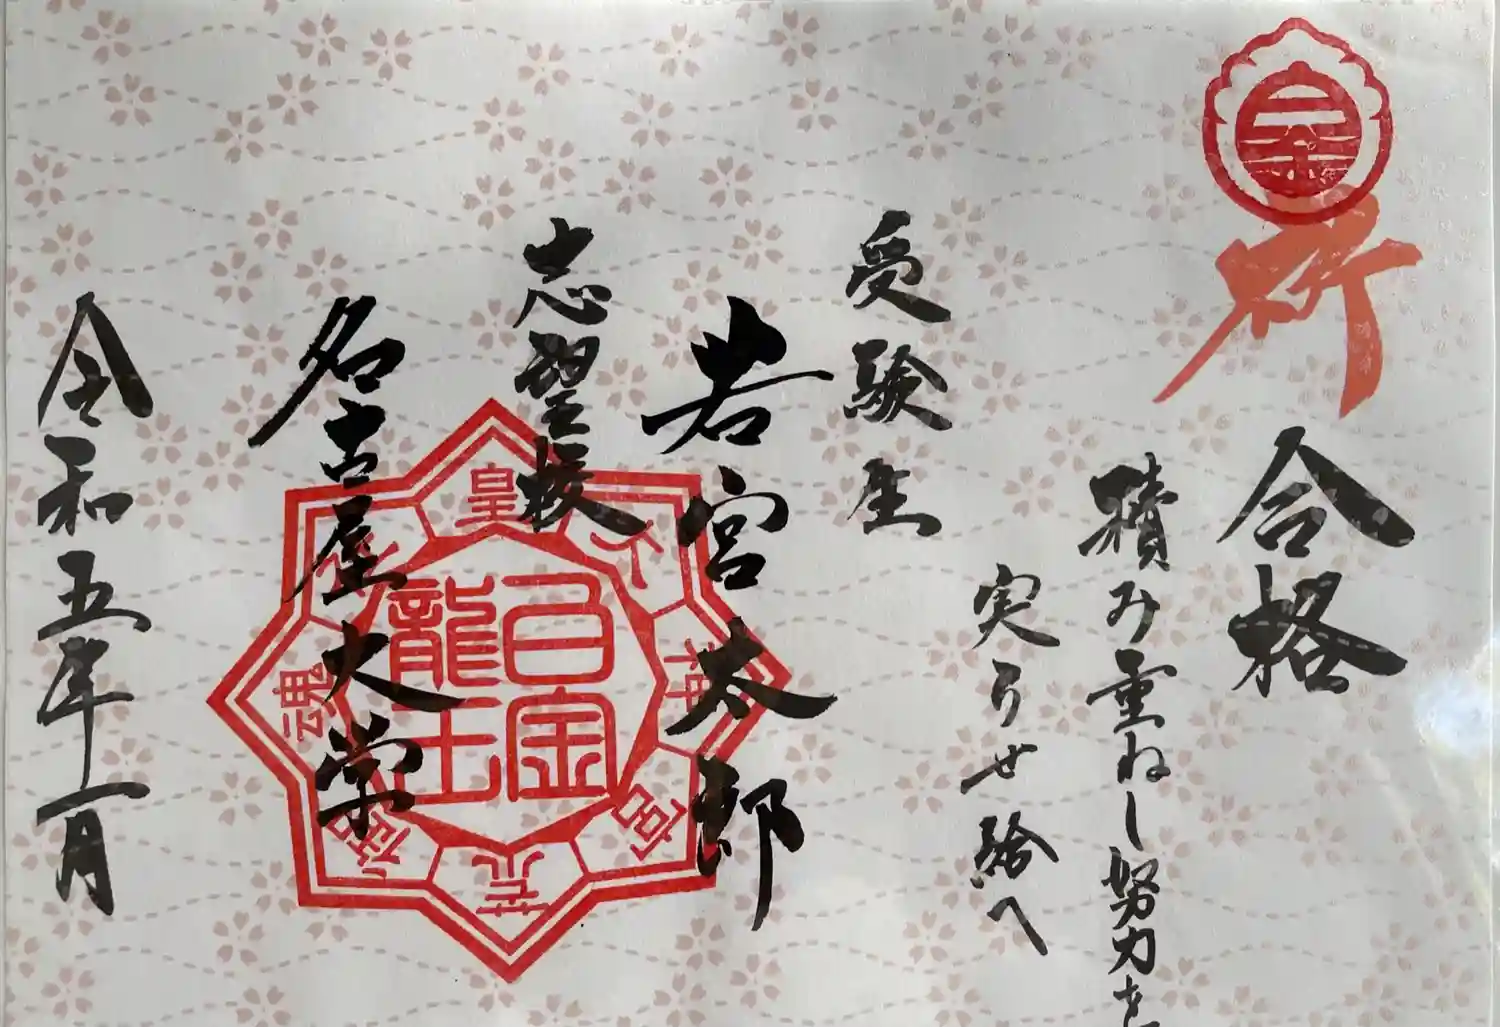 祈
合格
積み重ねし努力を
実らせ給へ
受験生
若宮太郎
志望校
名古屋大学
白金
龍王
令和五年一月